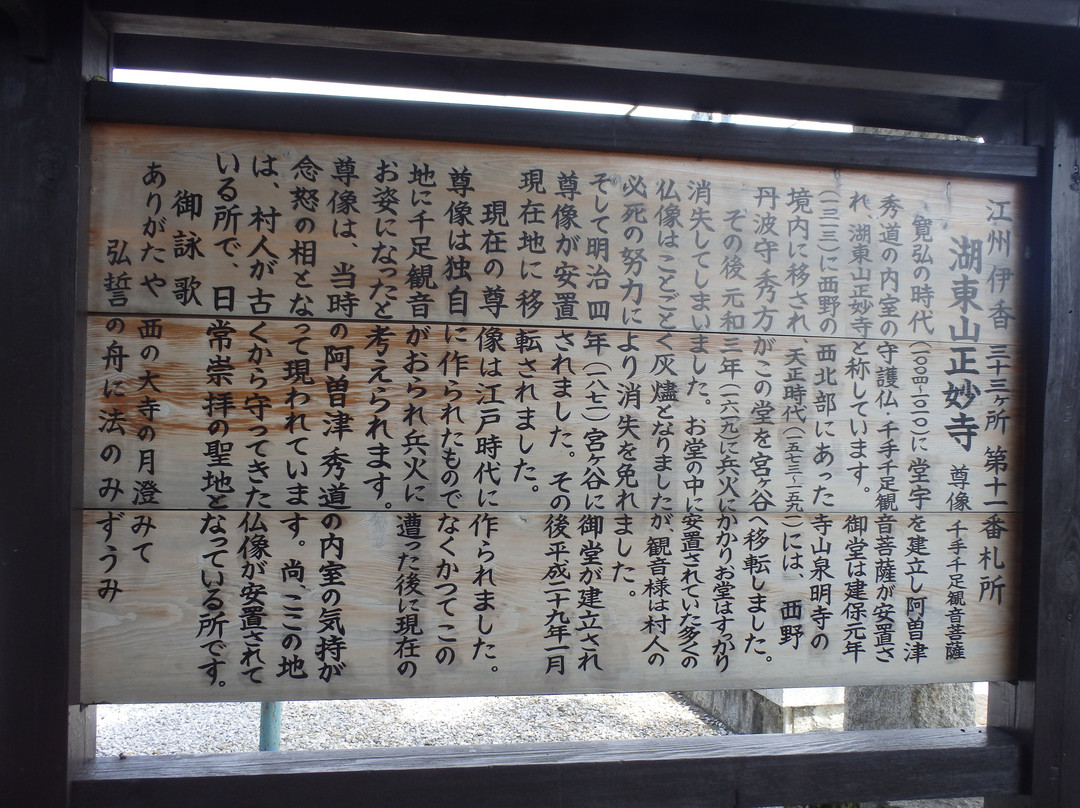 江州伊香三十三ヶ所 第十一番札所
湖東山正妙寺 尊像 千手千足観音菩薩
寛弘の時代(一〇〇四~一〇一〇)に堂宇を建立し阿曽津
秀道の内室の守護仏・千手千足観音菩薩が安置さ
れ、湖東山正妙寺と称しています。 御堂は建保元年
(一二一三)に西野の西北部にあった寺山泉明寺の
境内に移され、天正時代(一五七三~一五九一)には、西野
丹波守秀方がこの堂を宮ヶ谷へ移転しました。
その後元和三年(一六一九)に兵火にかかりお堂はすっかり
消失してしまいました。お堂の中に安置されていた多くの
仏像はことごとく灰燼となりましたが観音様は村人の
必死の努力により消失を免れました。
そして明治四年(一八七一)宮ヶ谷に御堂が建立され
尊像が安置されました。その後平成二十九年一月
現在地に移転されました。
現在の尊像は江戸時代に作られました。
尊像は独自に作られたものでなくかつてこの
地に千足観音がおられ兵火に遭った後に現在の
お姿になったと考えられます。
尊像は、当時の阿曽津秀道の内室の気持が
念怒の相となって現われています。尚、ここの地
は、村人が古くから守ってきた仏像が安置されて
いる所で、日常崇拝の聖地となっている所です。
御詠歌
ありがたや 西の大寺の月澄みて
弘誓の舟に法のみずうみ